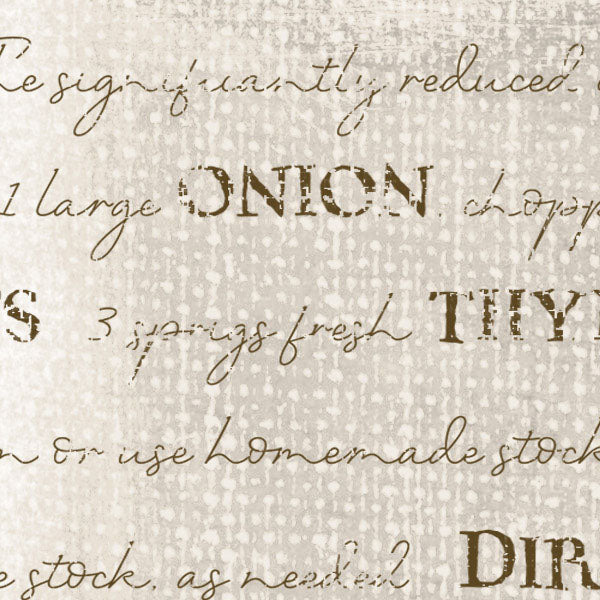 be significantly reduced
1 large ONION, chopp
TS 3 sprigs fresh THY
n or use homemade stock
e stock, as needed DIR